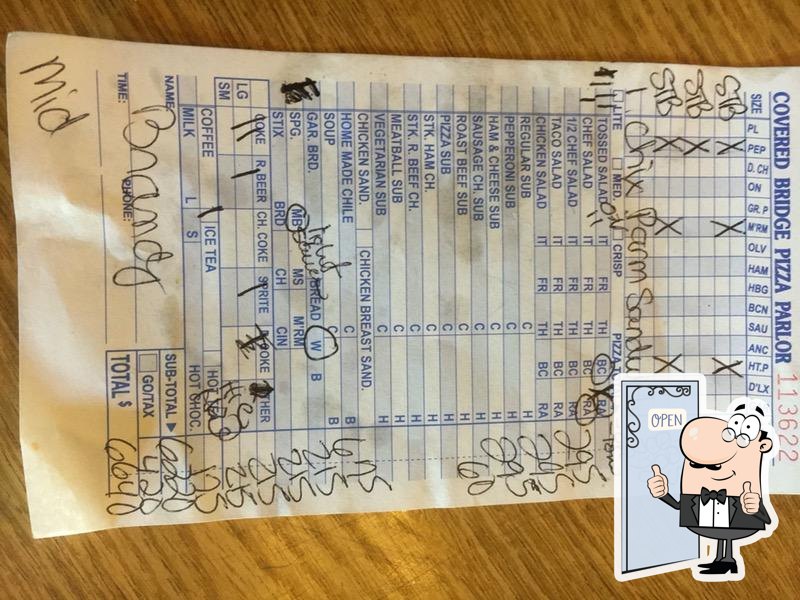 COVERED BRIDGE PIZZA PARLOR
113622
SIZE PL PEP D. CH ON GR. P M'RM OLV HAM HBG BCN SAU ANC HT.P D'LX
STB X X X
STB X
STB X X X
1 Chix Parm
LITE MED CRISP PIZZA
TOSSED SALAD IT FR TH BC RA
CHEF SALAD IT FR TH BC RA 295
1/2 CHEF SALAD IT FR TH BC RA 295
TACO SALAD IT FR TH BC RA
CHICKEN SALAD IT FR TH BC RA 295
REGULAR SUB C H
PEPPERONI SUB C H 295
HAM & CHEESE SUB C H
SAUSAGE CH. SUB C H 60
ROAST BEEF SUB C H
PIZZA SUB C H
STK. HAM CH. C H
STK. R. BEEF CH. C H
MEATBALL SUB C H
VEGETARIAN SUB C H
CHICKEN SAND. CHICKEN BREAST SAND.
HOME MADE CHILE C B 675
SOUP C B 215
GAR. BRD. BREAD W B 215
SPG. MB MS M'RM 215
STIX BRD CH CIN 215
LG COKE R. BEER CH. COKE SPRITE D. COKE OTHER 215
SM
COFFEE ICE TEA HOT TEA 175
MILK L S HOT CHOC.
NAME: Brandy SUB-TOTAL 6220
PHONE: GO/TAX 428
TIME: TOTAL $ 6648
Mid
OPEN